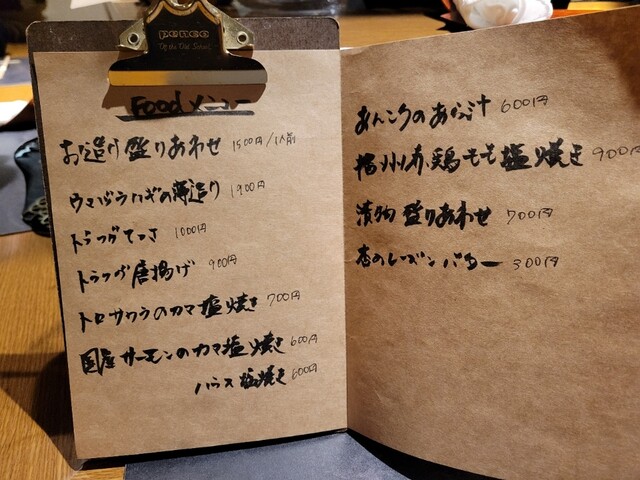 penco
Food メニュー
お造り盛りあわせ 1500円/1人前
ウマヅラハギの薄造り 1900円
トラフグてっさ 1000円
トラフグ唐揚げ 900円
トロサワラのカマ塩焼き 700円
国産サーモンのカマ塩焼き 600円
ハラス塩焼き 600円
あんこうのあら汁 600円
播州赤鶏もも塩焼き 900円
漬物盛りあわせ 700円
杏のレーズンバター 300円